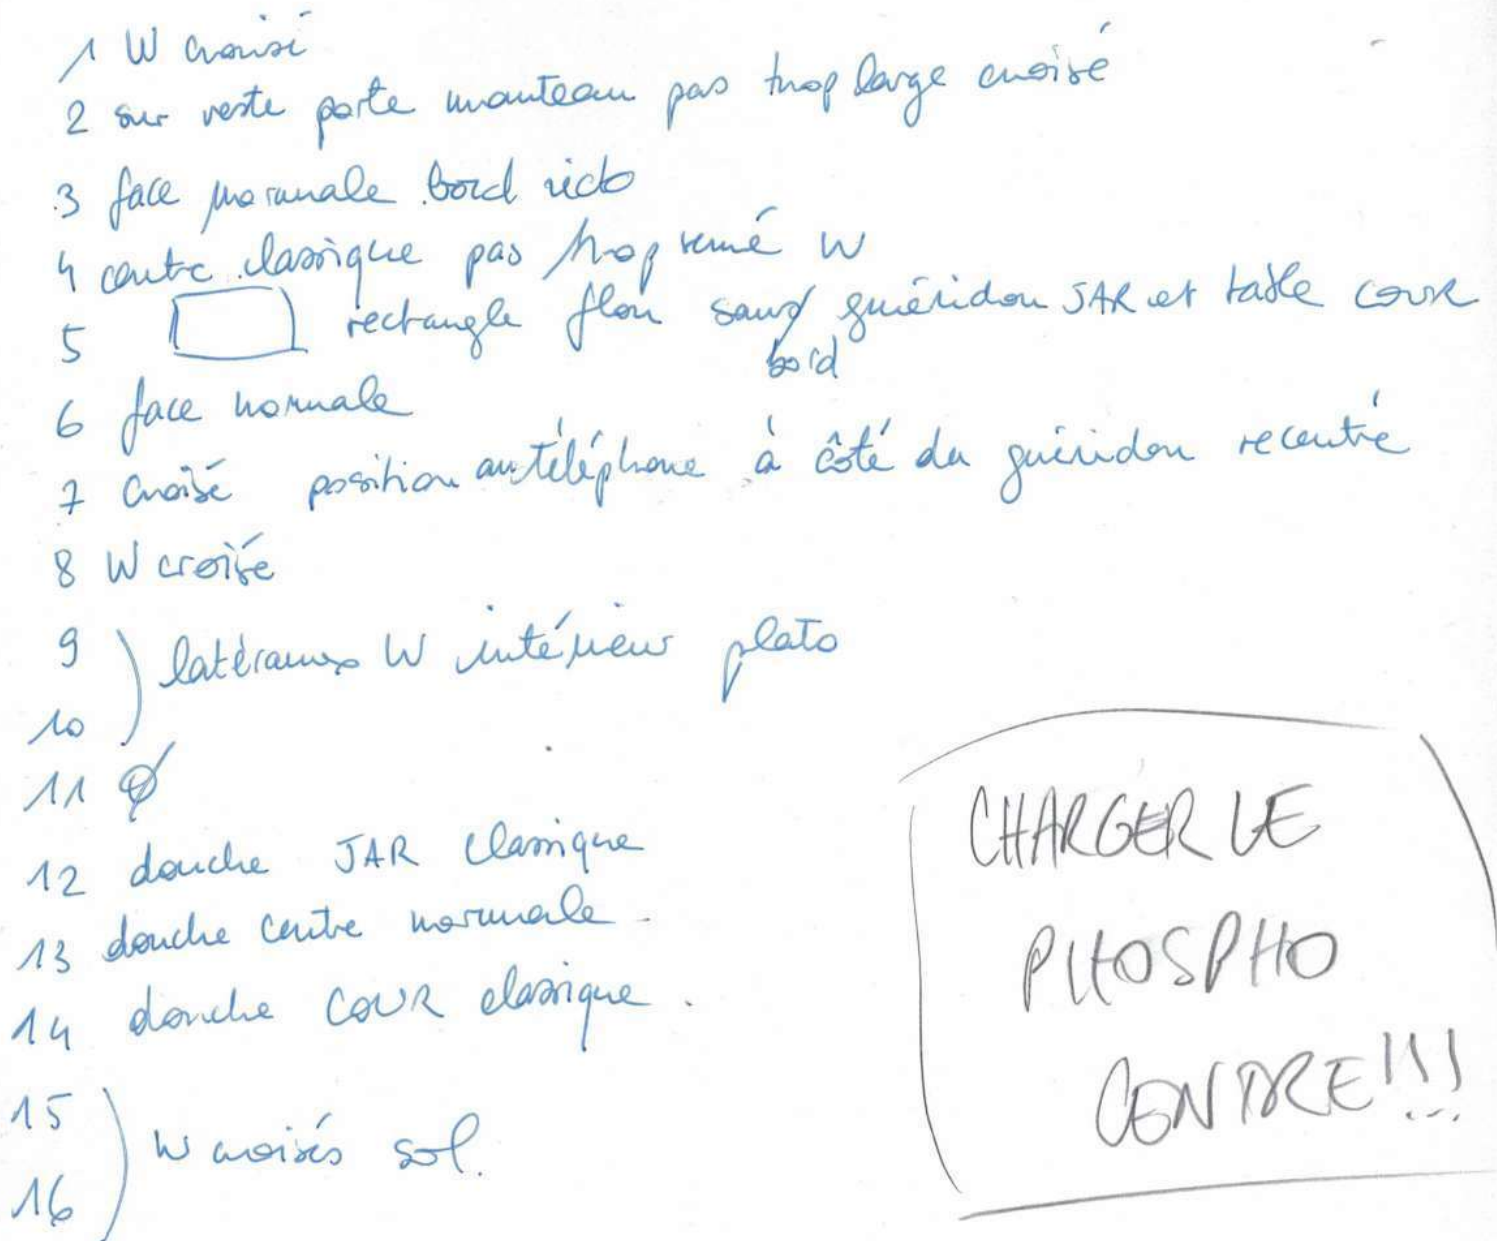 1 W croisé
2 sur veste porte manteau pas trop large croisé
3 face normale bord rido
4 contre classique pas trop serré W
5 rectangle flou sans bord guéridon JAR et table cour
6 face normale
7 croisé position au téléphone à côté du guéridon recentré
8 W croisé
9
latéraux W intérieur plato
10
11 Ø
12 douche JAR classique
13 douche centre normale
14 douche COUR classique.
15
W croisés sol.
16
CHARGER LE
PHOSPHO
CENTRE!!!